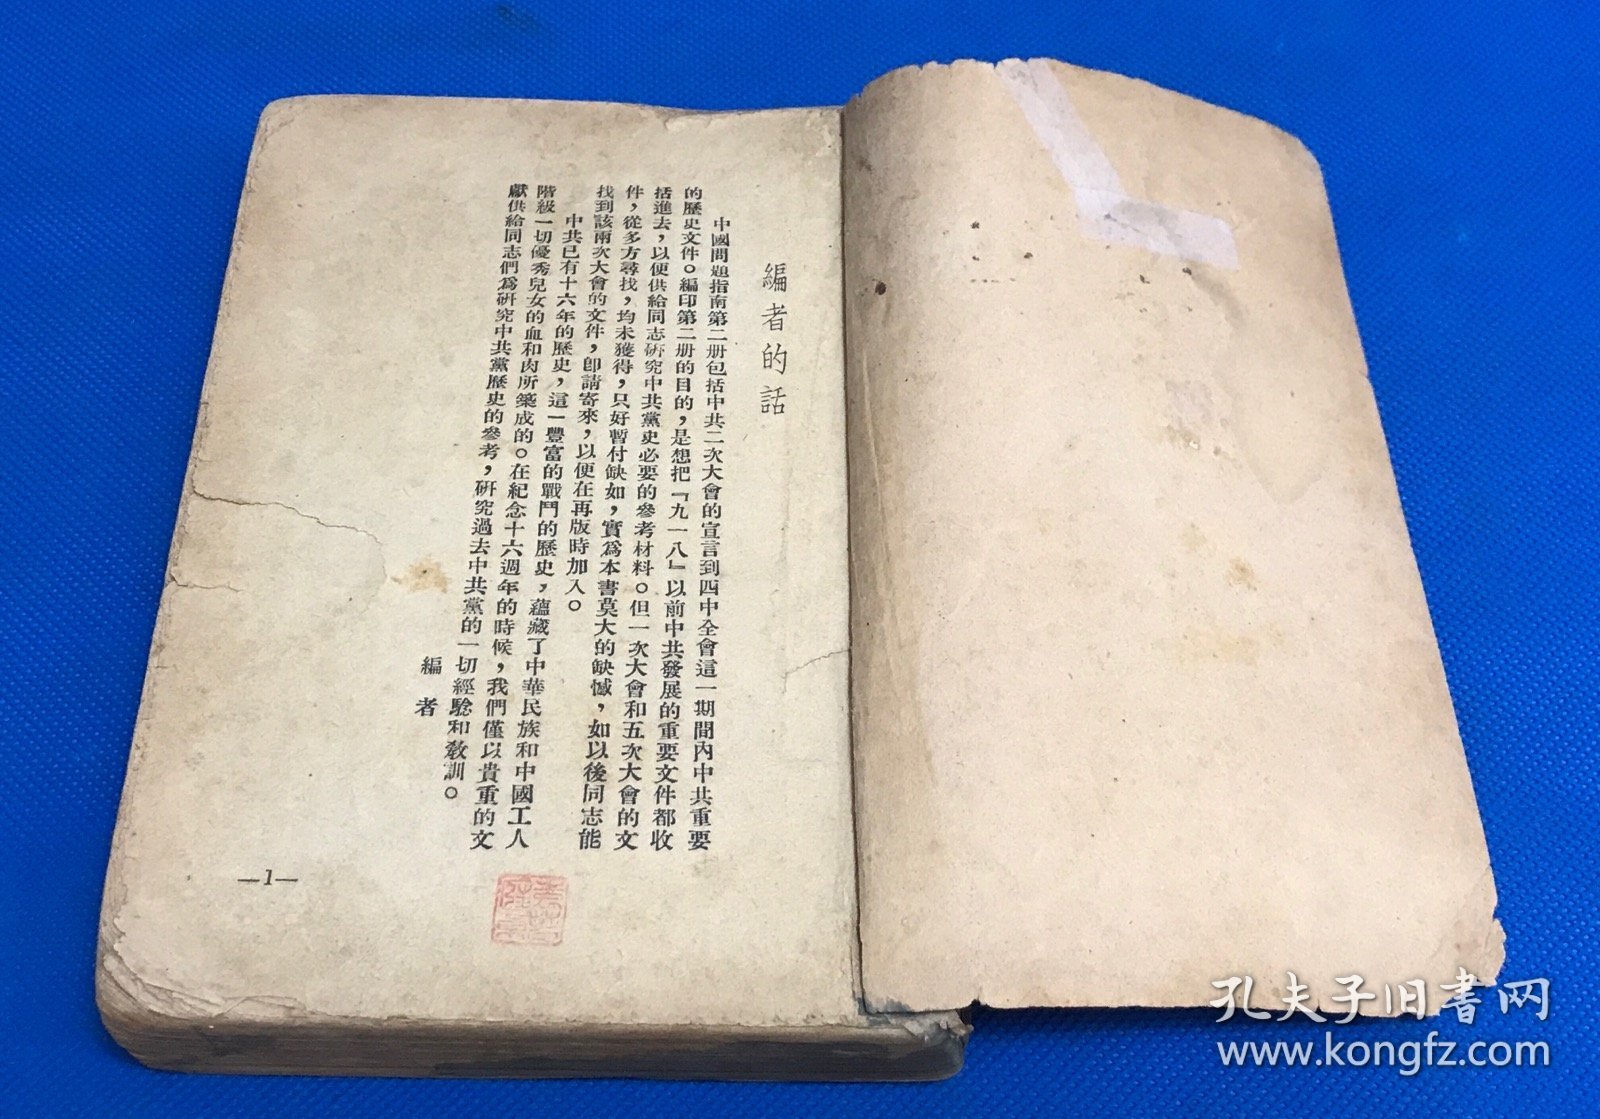 編者的話
中國問題指南第二册包括中共二次大會的宣言到四中全會這一期間內中共重要
的歷史文件。編印第二册的目的，是想把『九一八』以前中共發展的重要文件都收
括進去，以便供給同志硏究中共黨史必要的參考材料。但一次大會和五次大會的文
件，從多方尋找，均未獲得，只好暫付缺如，實爲本書莫大的缺憾，如以後同志能
找到該兩次大會的文件，卽請寄來，以便在再版時加入。
中共已有十六年的歷史，這一豐富的戰鬥的歷史，蘊藏了中華民族和中國工人
階級一切優秀兒女的血和肉所築成的。在紀念十六週年的時候，我們僅以貴重的文
獻供給同志們爲硏究中共黨歷史的參考，硏究過去中共黨的一切經驗和敎訓。
編者
—1—
孔夫子旧書网
www.kongfz.com